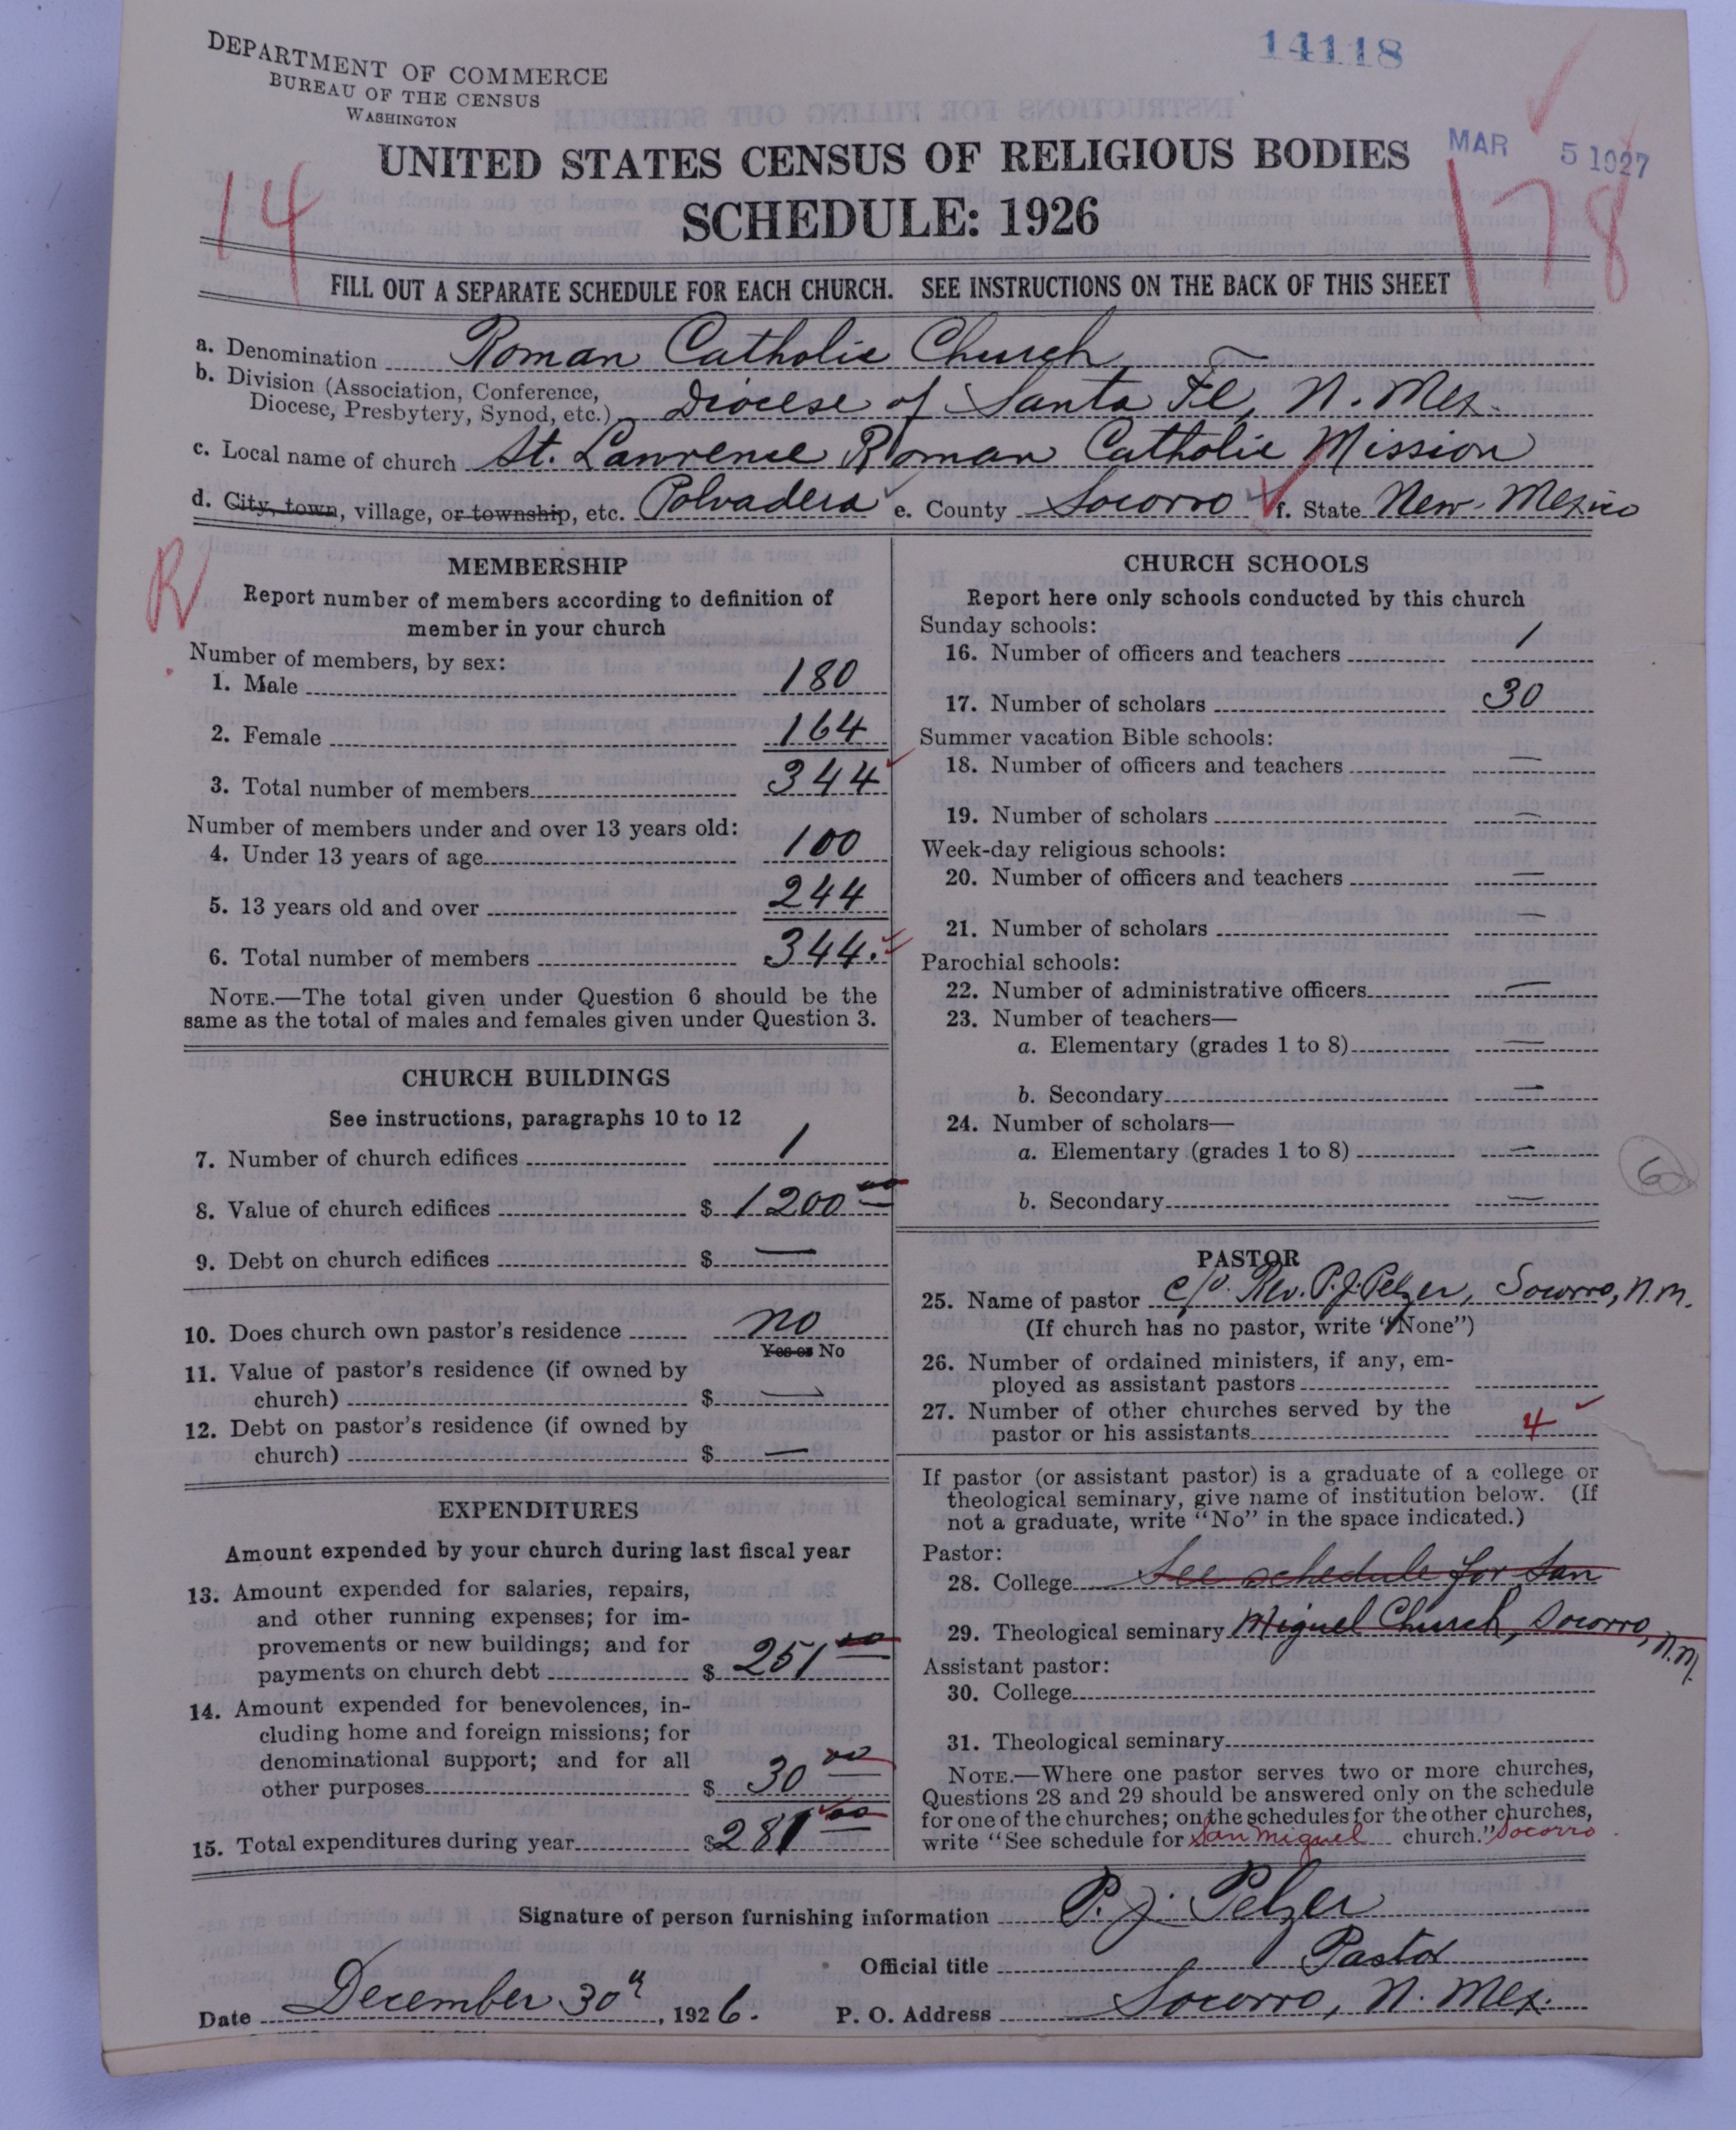 14118
DEPARTMENT OF COMMERCE
BUREAU OF THE CENSUS
WASHINGTON
MAR 5 1927
UNITED STATES CENSUS OF RELIGIOUS BODIES
SCHEDULE: 1926
14
178
FILL OUT A SEPARATE SCHEDULE FOR EACH CHURCH. SEE INSTRUCTIONS ON THE BACK OF THIS SHEET
a. Denomination Roman Catholic Church
b. Division (Association, Conference,
Diocese, Presbytery, Synod, etc.) Diocese of Santa Fe, N. Mex.
c. Local name of church St. Lawrence Roman Catholic Mission
d. City, town, village, or township, etc. Polvadera e. County Socorro f. State New-Mexico
R
MEMBERSHIP
Report number of members according to definition of
member in your church
Number of members, by sex:
1. Male 180
2. Female 164
3. Total number of members 344
Number of members under and over 13 years old:
4. Under 13 years of age 100
5. 13 years old and over 244
6. Total number of members 344.
NOTE.—The total given under Question 6 should be the
same as the total of males and females given under Question 3.
CHURCH BUILDINGS
See instructions, paragraphs 10 to 12
7. Number of church edifices 1
8. Value of church edifices $ 1200 00
9. Debt on church edifices $ —
10. Does church own pastor's residence no
Yes or No
11. Value of pastor's residence (if owned by
church) $ —
12. Debt on pastor's residence (if owned by
church) $ —
EXPENDITURES
Amount expended by your church during last fiscal year
13. Amount expended for salaries, repairs,
and other running expenses; for im-
provements or new buildings; and for
payments on church debt $ 251 00
14. Amount expended for benevolences, in-
cluding home and foreign missions; for
denominational support; and for all
other purposes $ 30 00
15. Total expenditures during year $ 281 00
CHURCH SCHOOLS
Report here only schools conducted by this church
Sunday schools:
16. Number of officers and teachers 1
17. Number of scholars 30
Summer vacation Bible schools:
18. Number of officers and teachers —
19. Number of scholars —
Week-day religious schools:
20. Number of officers and teachers —
21. Number of scholars —
Parochial schools:
22. Number of administrative officers —
23. Number of teachers—
a. Elementary (grades 1 to 8) —
b. Secondary —
24. Number of scholars—
a. Elementary (grades 1 to 8) —
b. Secondary —
6
PASTOR
25. Name of pastor c/o. Rev. P. J. Pelzer, Socorro, N.M.
(If church has no pastor, write "None")
26. Number of ordained ministers, if any, em-
ployed as assistant pastors
27. Number of other churches served by the
pastor or his assistants 4
If pastor (or assistant pastor) is a graduate of a college or
theological seminary, give name of institution below. (If
not a graduate, write "No" in the space indicated.)
Pastor:
28. College See schedule for San
29. Theological seminary Miguel Church, Socorro, N.M.
Assistant pastor:
30. College
31. Theological seminary
NOTE.—Where one pastor serves two or more churches,
Questions 28 and 29 should be answered only on the schedule
for one of the churches; on the schedules for the other churches,
write "See schedule for San Miguel church." Socorro.
Signature of person furnishing information P. J. Pelzer
Official title Pastor
Date December 30th, 1926. P. O. Address Socorro, N. Mex.